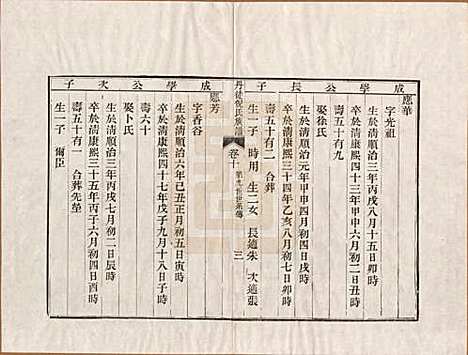 成學公長子
應華
字光祖
生於清順治三年丙戌八月十五日卯時
卒於清康熙四十三年甲申六月初二日卯時
壽五十有九
娶徐氏
生於清順治元年甲申四月初四日戌時
卒於清康熙三十四年乙亥八月初七日卯時
壽五十有二 合葬
生一子 時用 生二女 長適朱 次適張
丹徒倪氏族譜 卷十 三
成學公次子
應芳
字香谷
生於清順治六年己丑正月初五日寅時
卒於清康熙四十七年戊子九月十八日子時
壽六十
娶卜氏
生於清順治三年丙戌七月初二日辰時
卒於清康熙三十五年丙子六月初四日酉時
壽五十有一 合葬先塋
生一子 爾臣